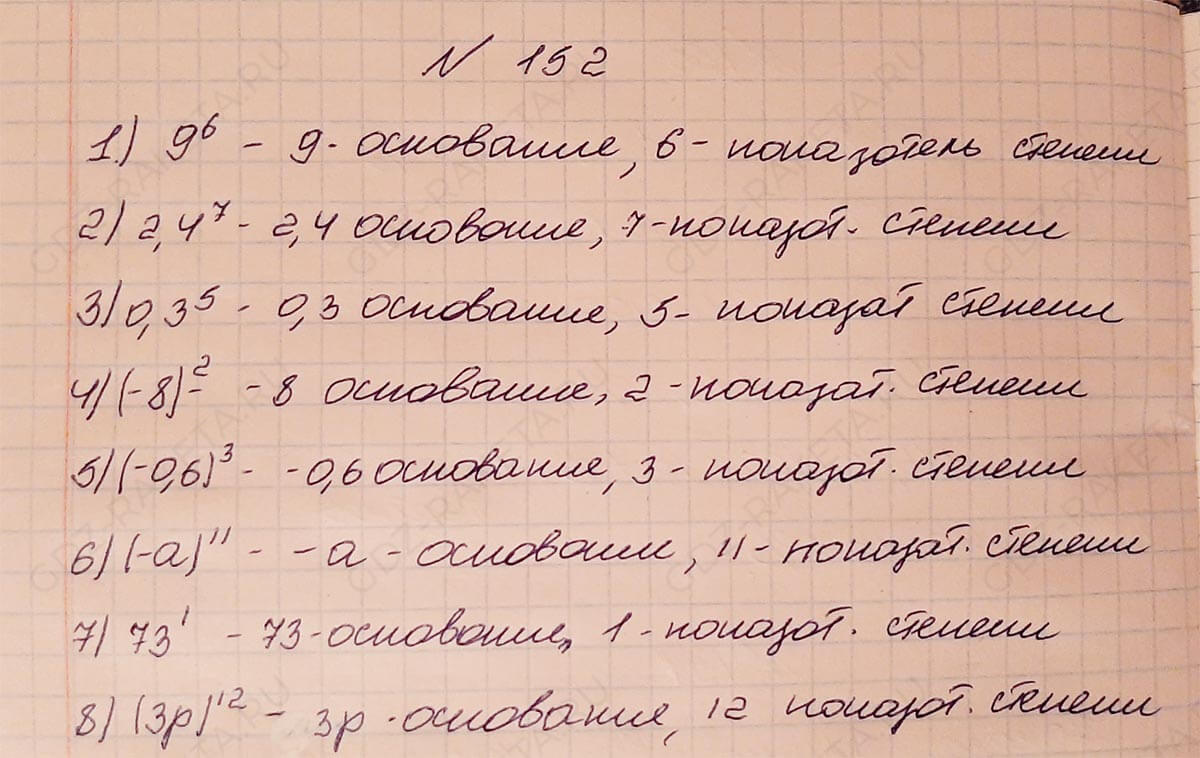 N 152
1) 9⁶ - 9 - основание, 6 - показатель степени
2) 2,4⁷ - 2,4 основание, 7 - показат. степени
3) 0,3⁵ - 0,3 основание, 5 - показат степени
4) (-8)² - -8 основание, 2 - показат. степени
5) (-0,6)³ - -0,6 основание, 3 - показат. степени
6) (-a)¹¹ - -a - основание, 11 - показат. степени
7) 73¹ - 73 - основание, 1 - показат. степени
8) (3p)¹² - 3p - основание, 12 показат. степени
GDZ-RAKETA.RU